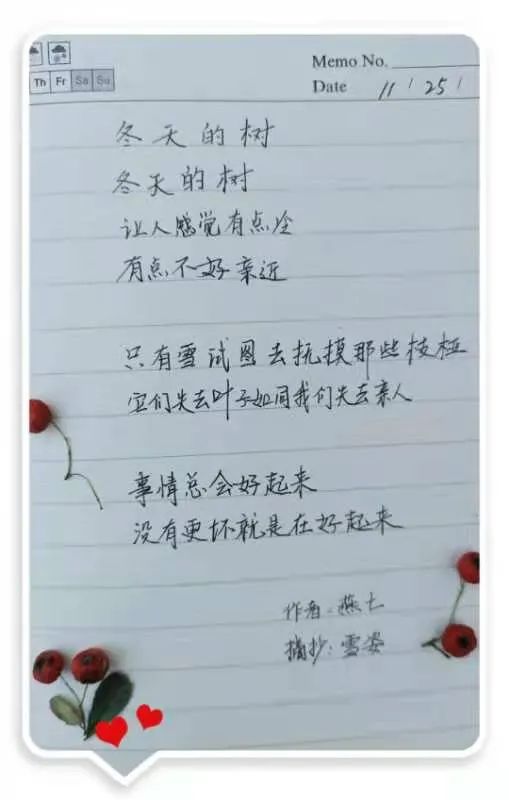 Memo No.
Th Fr Sa Su
Date 11 / 25 /
冬天的树
冬天的树
让人感觉有点冷
有点不好亲近
只有雪试图去抚摸那些枝桠
它们失去叶子如同我们失去亲人
事情总会好起来
没有更坏就是在好起来
作者:燕七
摘抄:雪姿